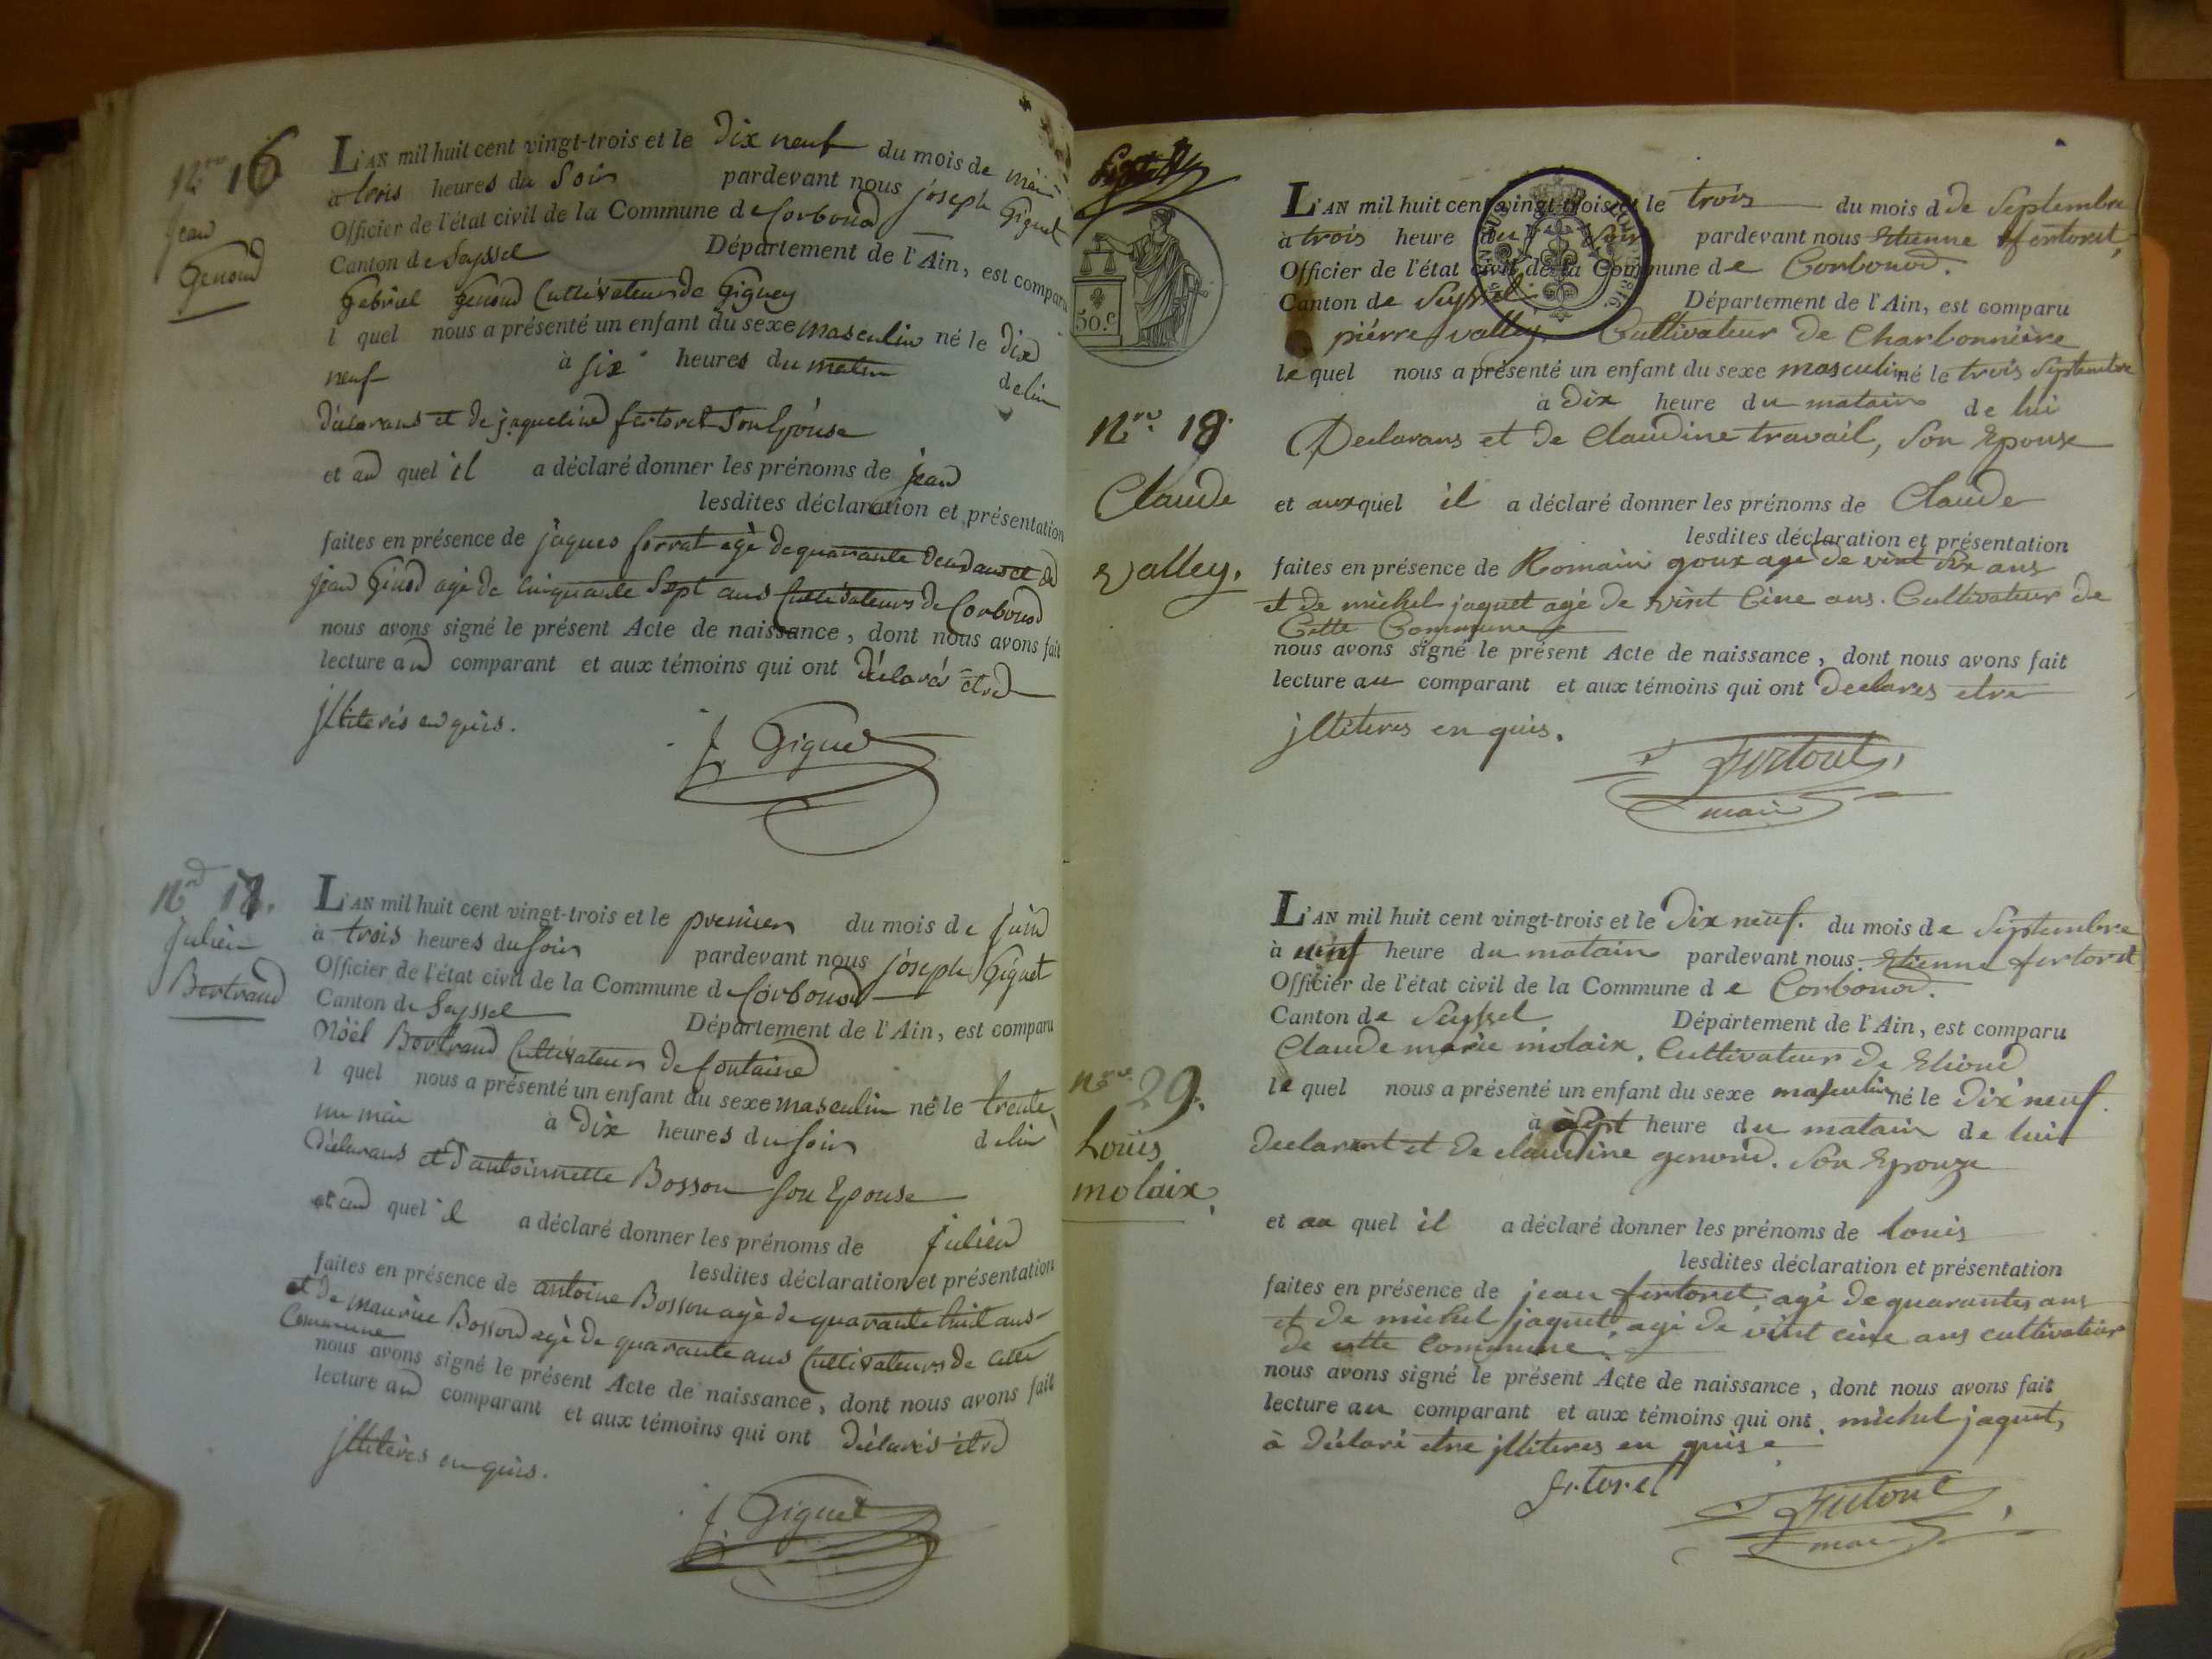 Nro 16
Jean
Genoud
L'AN mil huit cent vingt-trois et le dix neuf du mois de mai
à trois heures du Soir pardevant nous joseph Giguet
Officier de l'état civil de la Commune de Corbonod
Canton de Seyssel Département de l'Ain, est comparu
Gebriel Genoud Cultivateur de Gignez
l quel nous a présenté un enfant du sexe masculin né le dix
neuf à six heures du matin de lui
déclarans et de jaqueline fertoret Son Epouse
et au quel il a déclaré donner les prénoms de jean
lesdites déclaration et présentation
faites en présence de jaques forrat agé de quarante deux ans et de
jean Genod agé de Cinquante Sept ans Cultivateurs de Corbonod
nous avons signé le présent Acte de naissance, dont nous avons fait
lecture au comparant et aux témoins qui ont déclarés être
jlliterés enquis.
J Giguet
Nro 17.
julien
Bertrand
L'AN mil huit cent vingt-trois et le premier du mois de juin
à trois heures du Soir pardevant nous joseph Giguet
Officier de l'état civil de la Commune de Corbonod
Canton de Seyssel Département de l'Ain, est comparu
Noël Bertrand Cultivateur de fontaine
l quel nous a présenté un enfant du sexe masculin né le trente
un mai à dix heures du Soir de lui
déclarans et d'antoinnette Bosson Son Epouse
et au quel il a déclaré donner les prénoms de julien
lesdites déclaration et présentation
faites en présence de antoine Bosson agé de quarante huit ans
et de maurice Bosson agé de quarante ans Cultivateurs de cette
Commune
nous avons signé le présent Acte de naissance, dont nous avons fait
lecture au comparant et aux témoins qui ont déclarés être
jlliterés enquis.
J Giguet
50.C
1816
Nro 18.
Claude
valley.
L'AN mil huit cent vingt-trois et le trois du mois d de Septembre
à trois heure du Soir pardevant nous Etienne fertoret,
Officier de l'état civil de la Commune de Corbonod.
Canton de Seyssel Département de l'Ain, est comparu
piérre valley Cultivateur de Charbonnière
le quel nous a présenté un enfant du sexe masculin né le trois Septembre
à dix heure du matain de lui
Declarans et de Claudine travail, Son Epouse
et auxquel il a déclaré donner les prénoms de Claude
lesdites déclaration et présentation
faites en présence de Romain goux agé de vint Six ans
et de michel jaquet agé de vint Cinc ans. Cultivateur de
Cette Commune
nous avons signé le présent Acte de naissance, dont nous avons fait
lecture au comparant et aux témoins qui ont declares etre
jlliteres en quis.
E fertoret,
maire
Nro 29.
Louis
molaix,
L'AN mil huit cent vingt-trois et le Dix neuf. du mois de Septembre
à neuf heure du matain pardevant nous Etienne fertoret
Officier de l'état civil de la Commune de Corbonod.
Canton de Seyssel Département de l'Ain, est comparu
Claude marie molaix. Cultivateur de Elioud
le quel nous a présenté un enfant du sexe masculin né le Dix neuf.
à Sept heure du matain de lui
declarent et de claudine genoud. Son Epouze
et au quel il a déclaré donner les prénoms de louis
lesdites déclaration et présentation
faites en présence de jean fertoret, agé de quarantes ans
et de michel jaquet, agé de vint cinc ans cultivateur
de cette Commune
nous avons signé le présent Acte de naissance, dont nous avons fait
lecture au comparant et aux témoins qui ont, michel jaquet,
à déclaré etre jlliteres en quis e
fertoret E fertoret
maire